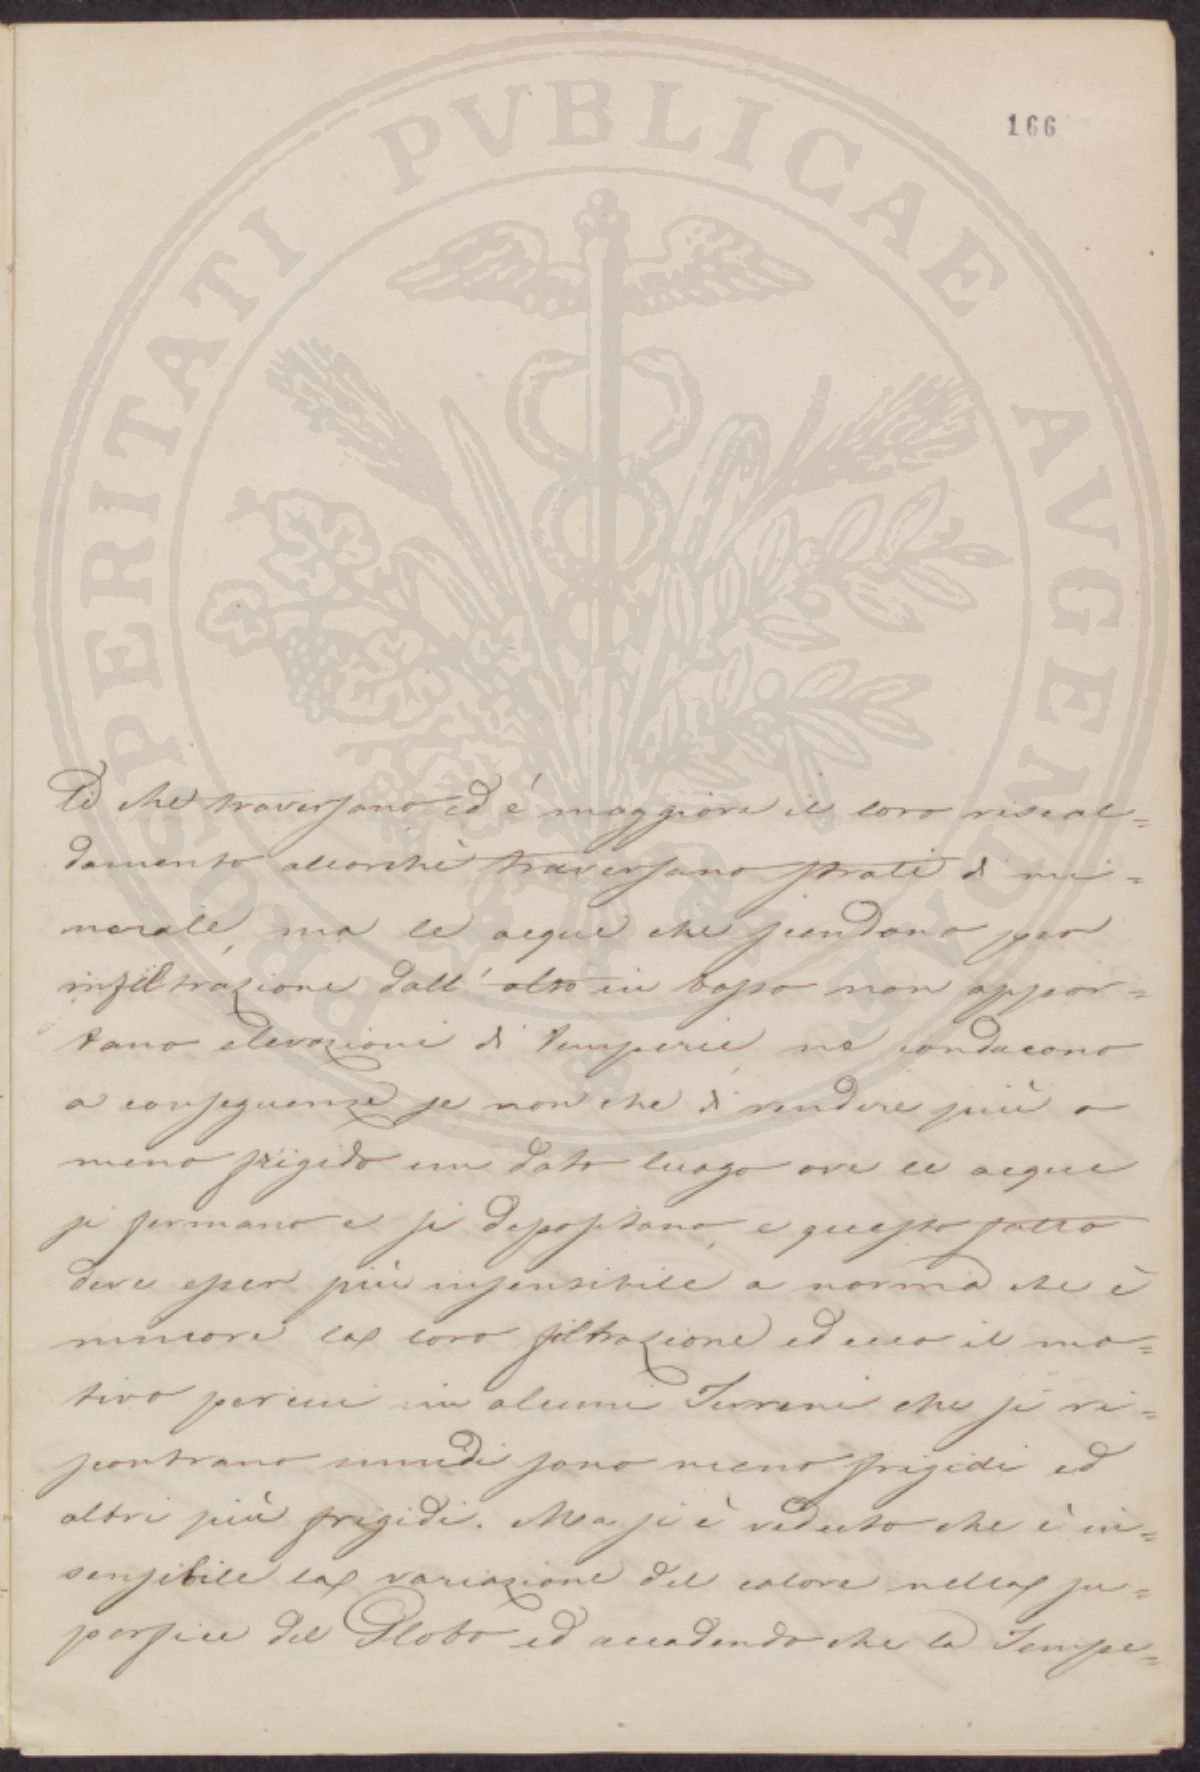 166
PROSPERITATI PUBLICAE AUGENDAE
ti che traversano ed é maggiore il loro riscal=
damento allorchè traversano strati di mi=
nerale, ma le acque che scendono per
infiltrazione dall'alto in basso non appor=
tano elevazioni di temperie ne conducono
a conseguenze se non che di rendere più o
meno frigido un dato luogo ove le acque
si fermano e si depositano, e questo fatto
deve esser più insensibile a norma che è
minore la loro filtrazione ed ecco il mo=
tivo per cui in alcuni Terreni che si ri=
scontrano umidi sono meno frigidi ed
altri più frigidi. Ma si è veduto che è in=
sensibile la variazione del calore nella su=
perficie del Globo ed accadendo che la Tempe=